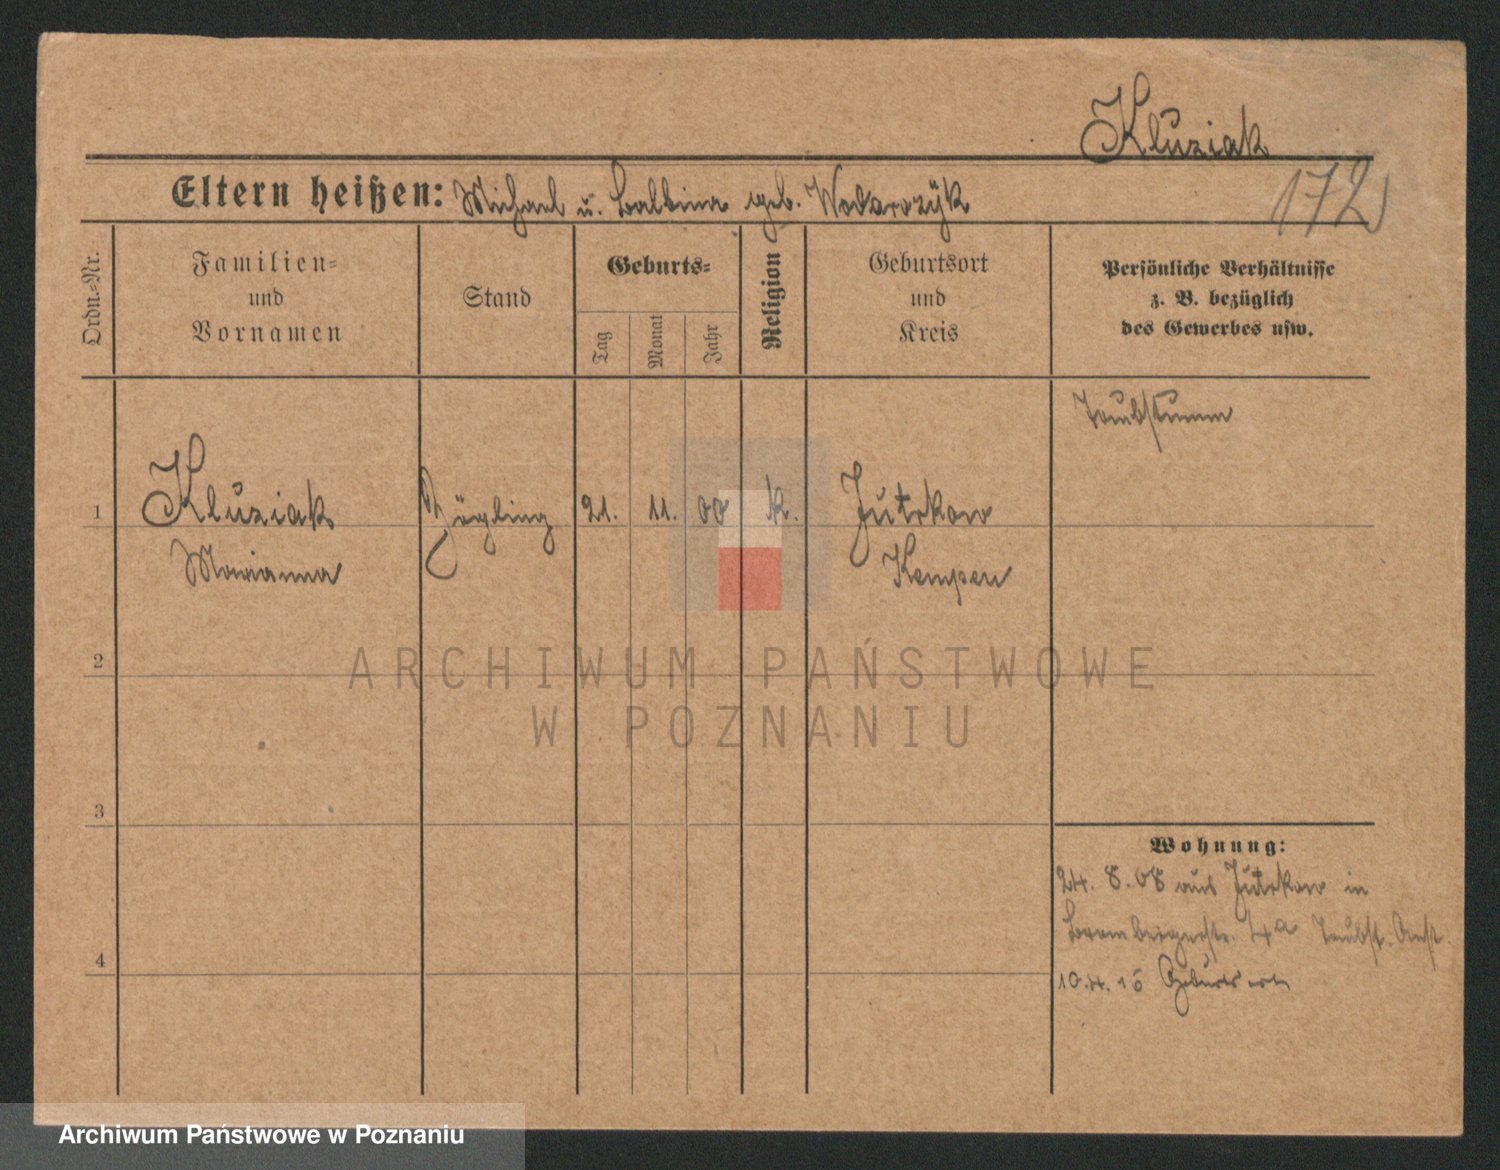 Kluziak
Eltern heißen: Michael u. Balbina geb. Wodarczyk
172
Ordn.=Nr.
Familien=
und
Vornamen
Stand
Geburts=
Tag
Monat
Jahr
Religion
Geburtsort
und
Kreis
Persönliche Verhältnisse
z. B. bezüglich
des Gewerbes usw.
Taubstumm
1
Kluziak
Marianna
Zögling
21.
11.
00
k.
Jutrkow
Kempen
2
ARCHIWUM PAŃSTWOWE
W POZNANIU
3
Wohnung:
24. 8. 08 aus Jutrkow in
Brombergerstr. 4a Taubst. Anst.
4
10.4.15 Geburtsort
Archiwum Państwowe w Poznaniu